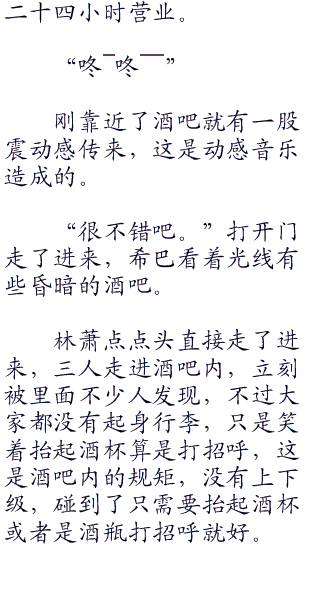 二十四小时营业。
“咚¯咚¯¯”
刚靠近了酒吧就有一股
震动感传来，这是动感音乐
造成的。
“很不错吧。”打开门
走了进来，希巴看着光线有
些昏暗的酒吧。
林萧点点头直接走了进
来，三人走进酒吧内，立刻
被里面不少人发现，不过大
家都没有起身行李，只是笑
着抬起酒杯算是打招呼，这
是酒吧内的规矩，没有上下
级，碰到了只需要抬起酒杯
或者是酒瓶打招呼就好。